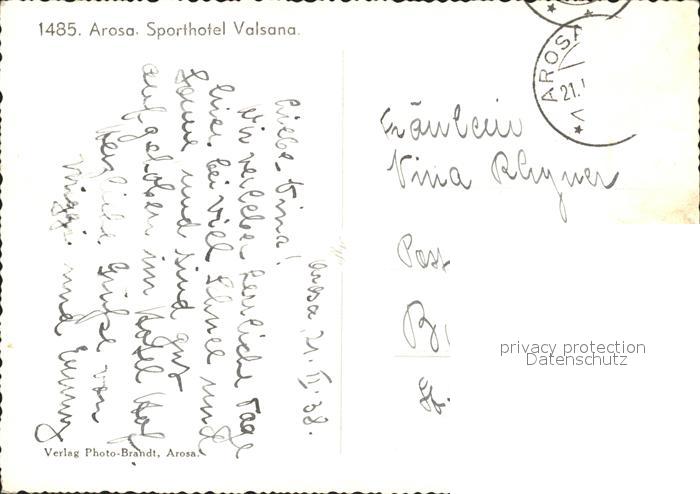 1485. Arosa. Sporthotel Valsana.
AROSA
21.
Arosa, 21. II. 38.
Liebe Nina!
Wir verleben herrliche Tage
hier bei viel Schnee und
Sonne und sind gut
aufgehoben im Hotel Hof.
Herzliche Grüsse von
und
Fräulein
Nina Rhyner
Post
B
privacy protection
Datenschutz
Verlag Photo-Brandt, Arosa.